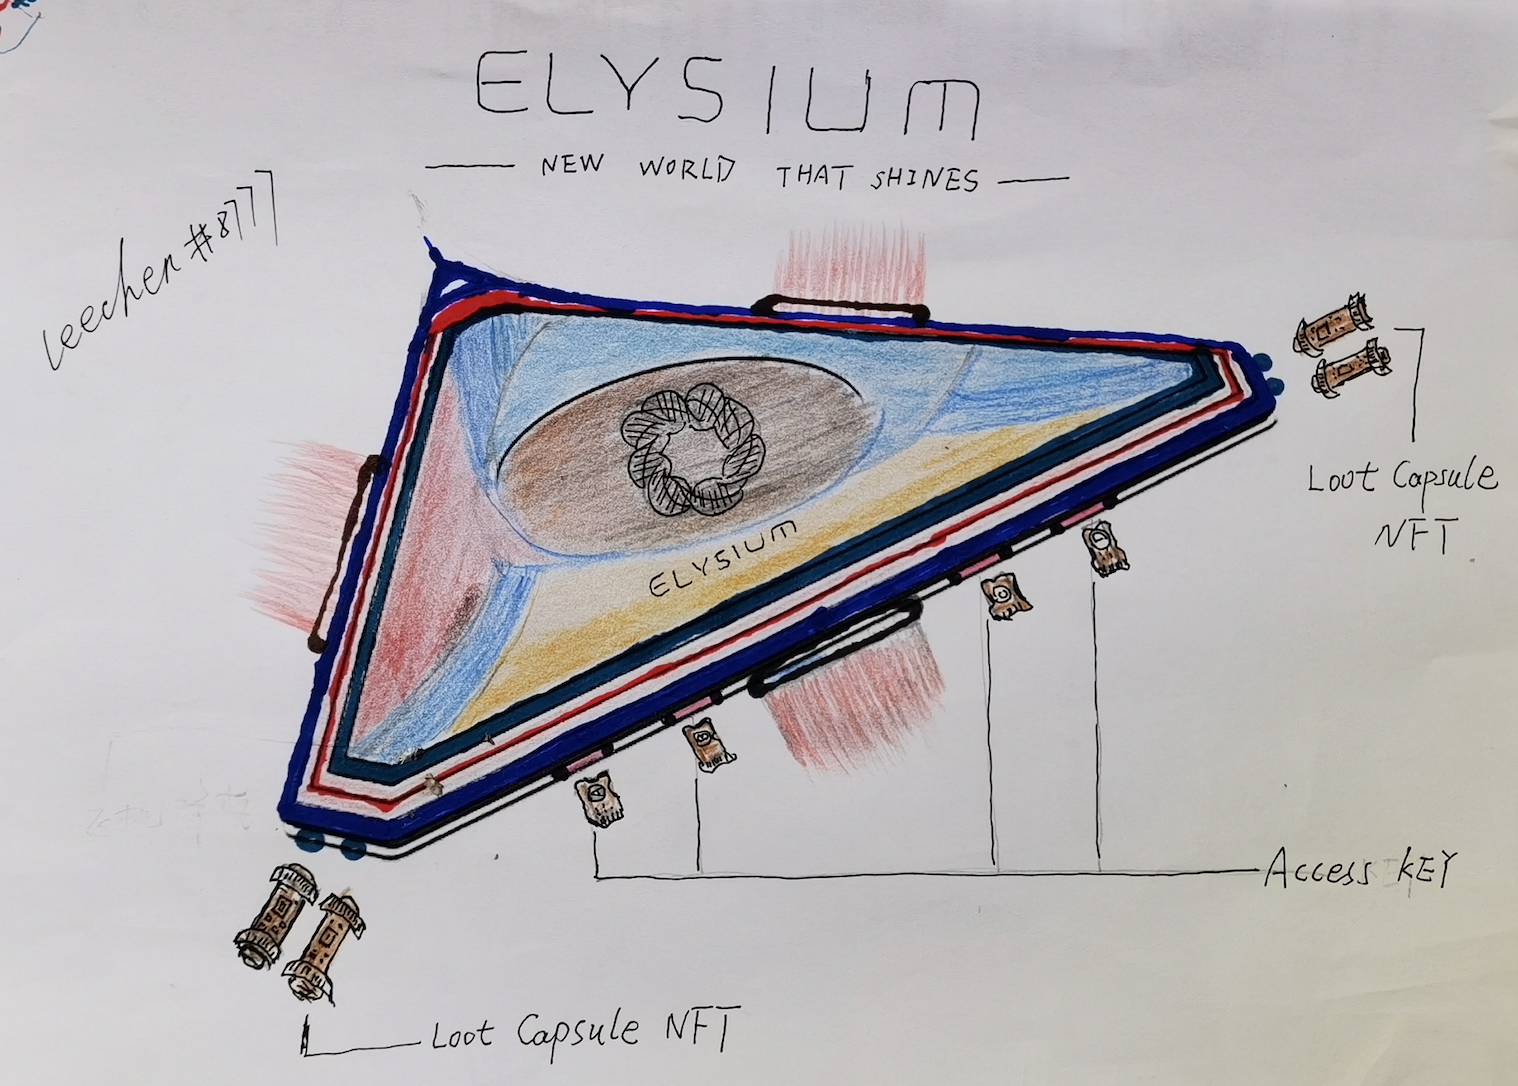 ELYSIUM
NEW WORLD THAT SHINES
leechen #8777
ELYSIUM
Loot Capsule
NFT
Access KEY
Loot Capsule NFT